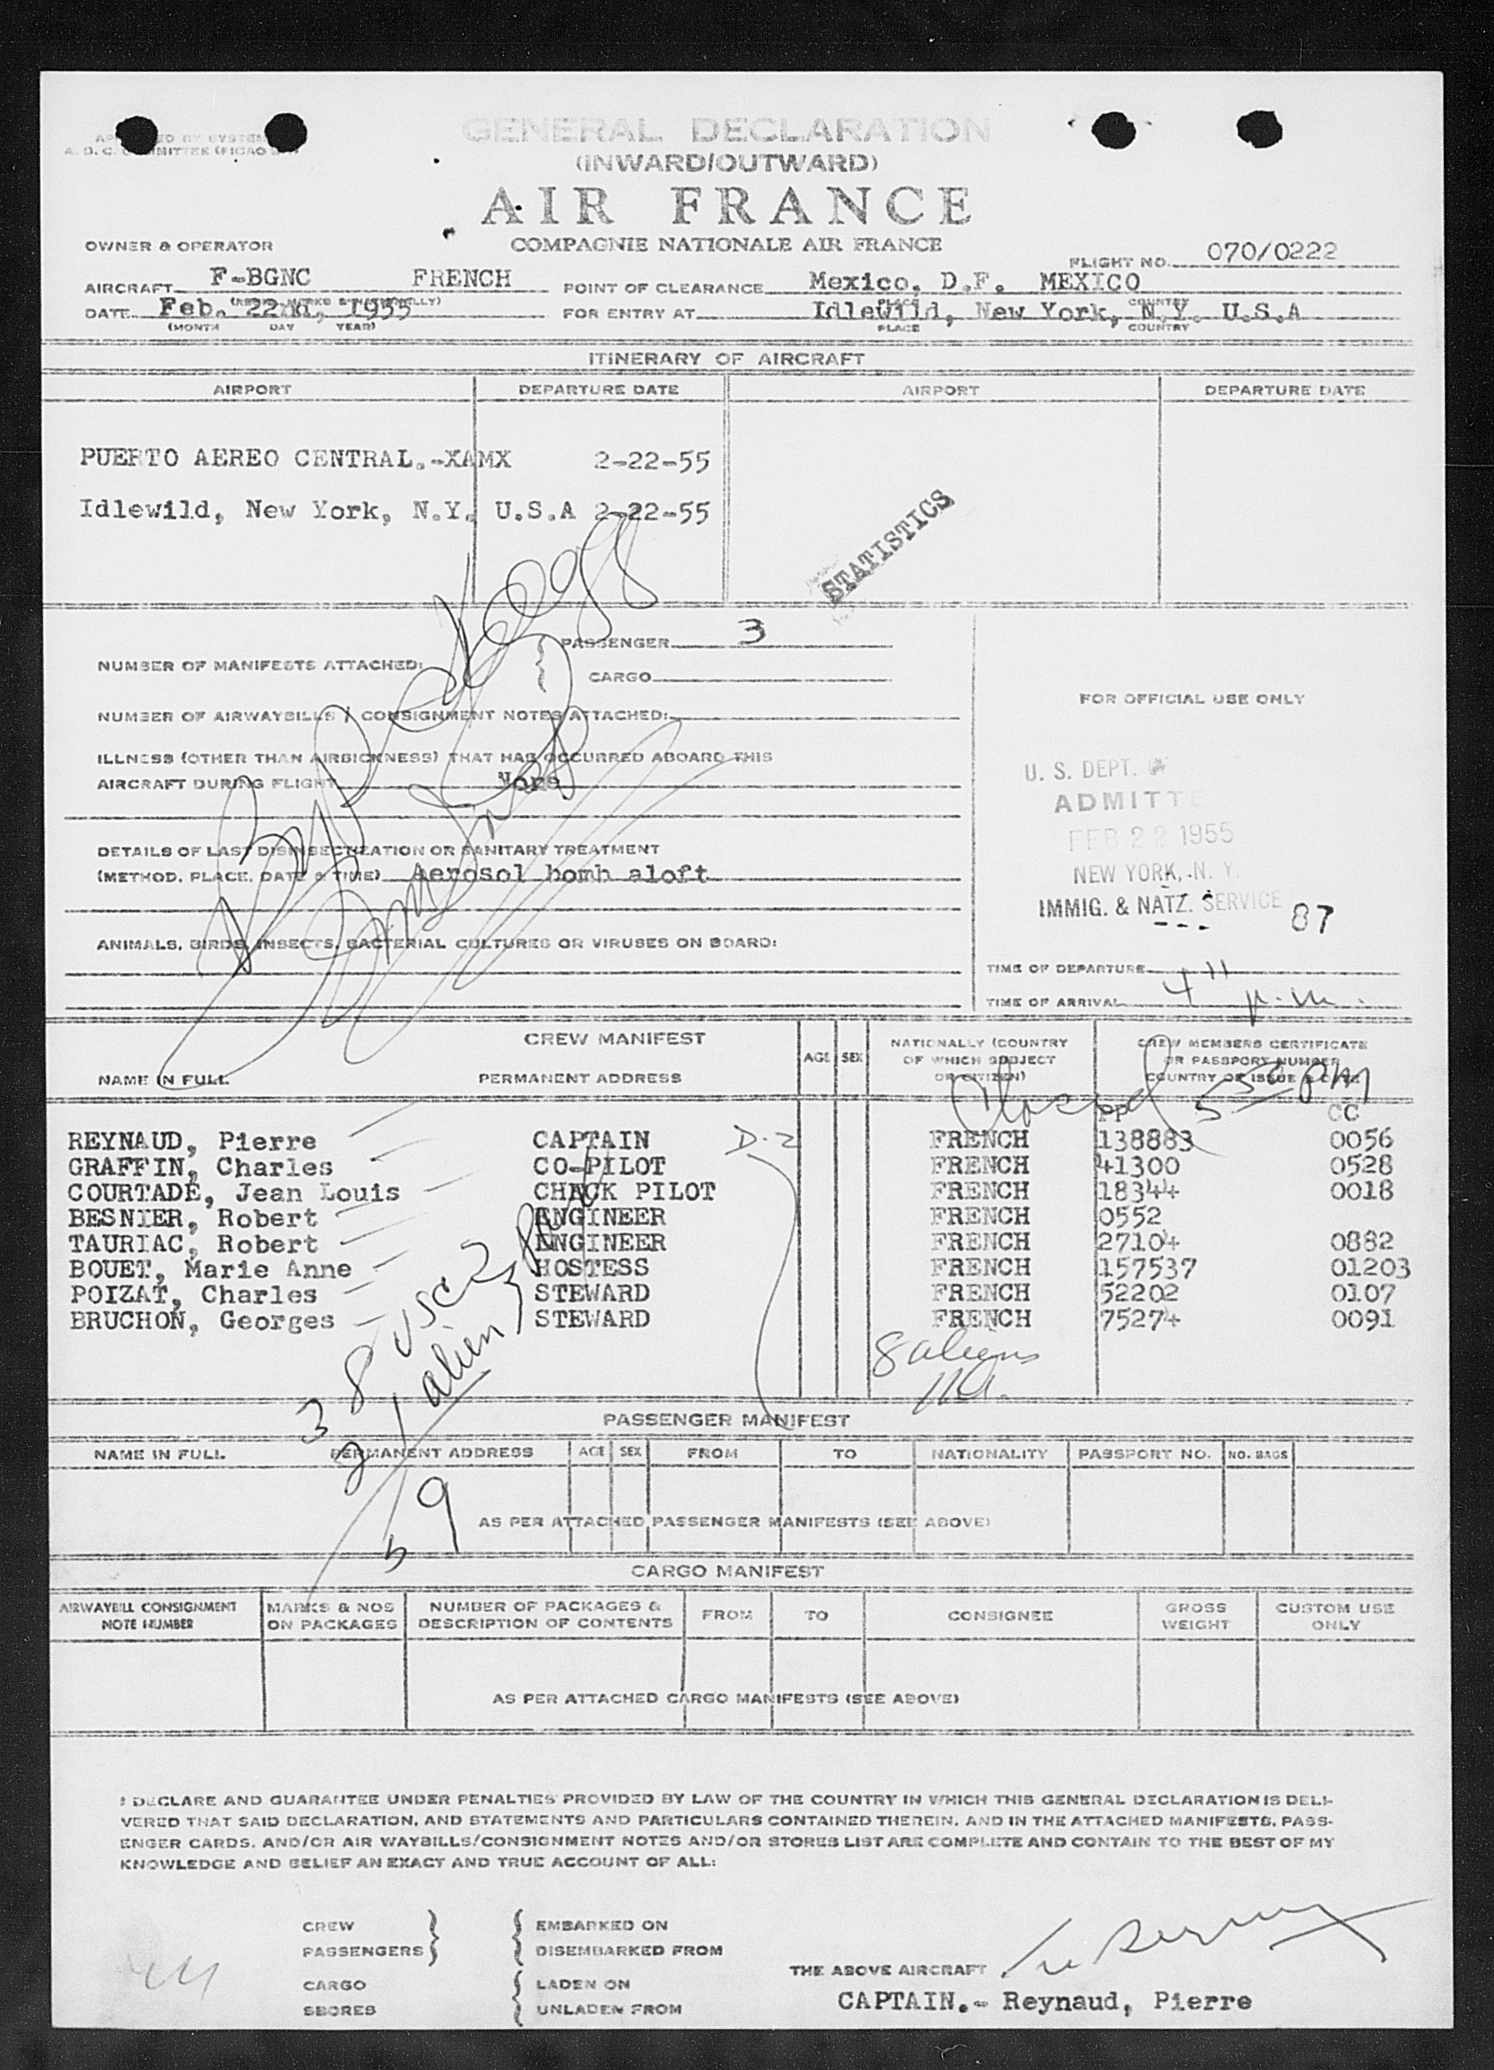 GENERAL DECLARATION
(INWARD/OUTWARD)
AIR FRANCE
COMPAGNIE NATIONALE AIR FRANCE
OWNER & OPERATOR
FLIGHT NO. 070/0222
AIRCRAFT F-BGNC FRENCH POINT OF CLEARANCE Mexico, D.F. MEXICO
PLACE COUNTRY
DATE Feb. 22nd, 1955 FOR ENTRY AT Idlewild, New York, N.Y. U.S.A
(MONTH DAY YEAR) PLACE COUNTRY
ITINERARY OF AIRCRAFT
AIRPORT DEPARTURE DATE AIRPORT DEPARTURE DATE
PUERTO AEREO CENTRAL.-XAMX 2-22-55
Idlewild, New York, N.Y. U.S.A 2-22-55
STATISTICS
PASSENGER 3
NUMBER OF MANIFESTS ATTACHED:
CARGO
FOR OFFICIAL USE ONLY
NUMBER OF AIRWAYBILLS / CONSIGNMENT NOTES ATTACHED:
ILLNESS (OTHER THAN AIRSICKNESS) THAT HAS OCCURRED ABOARD THIS
AIRCRAFT DURING FLIGHT None
U. S. DEPT.
ADMITTE
FEB 22 1955
NEW YORK, N. Y.
IMMIG. & NATZ. SERVICE 87
DETAILS OF LAST DISINSECTIZATION OR SANITARY TREATMENT
(METHOD, PLACE, DATE & TIME) Aerosol bomb aloft
ANIMALS, BIRDS, INSECTS, BACTERIAL CULTURES OR VIRUSES ON BOARD:
TIME OF DEPARTURE
TIME OF ARRIVAL 4 11 p.m.
CREW MANIFEST
NAME IN FULL PERMANENT ADDRESS AGE SEX NATIONALLY (COUNTRY OF WHICH SUBJECT OR CITIZEN) CREW MEMBERS CERTIFICATE OR PASSPORT NUMBER COUNTRY OF ISSUE & DATE
5 30 pm
PP CC
REYNAUD, Pierre CAPTAIN D-2 FRENCH 138883 0056
GRAFFIN, Charles CO-PILOT FRENCH 41300 0528
COURTADE, Jean Louis CHECK PILOT FRENCH 18344 0018
BESNIER, Robert ENGINEER FRENCH 0552
TAURIAC, Robert ENGINEER FRENCH 27104 0882
BOUET, Marie Anne HOSTESS FRENCH 157537 01203
POIZAT, Charles STEWARD FRENCH 52202 0107
BRUCHON, Georges STEWARD FRENCH 75274 0091
8 aliens
38 USC
21 alien
59
PASSENGER MANIFEST
NAME IN FULL PERMANENT ADDRESS AGE SEX FROM TO NATIONALITY PASSPORT NO. NO. BAGS
AS PER ATTACHED PASSENGER MANIFESTS (SEE ABOVE)
CARGO MANIFEST
AIRWAYBILL CONSIGNMENT NOTE NUMBER MARKS & NOS ON PACKAGES NUMBER OF PACKAGES & DESCRIPTION OF CONTENTS FROM TO CONSIGNEE GROSS WEIGHT CUSTOM USE ONLY
AS PER ATTACHED CARGO MANIFESTS (SEE ABOVE)
I DECLARE AND GUARANTEE UNDER PENALTIES PROVIDED BY LAW OF THE COUNTRY IN WHICH THIS GENERAL DECLARATION IS DELI-
VERED THAT SAID DECLARATION, AND STATEMENTS AND PARTICULARS CONTAINED THEREIN, AND IN THE ATTACHED MANIFESTS, PASS-
ENGER CARDS, AND/OR AIR WAYBILLS/CONSIGNMENT NOTES AND/OR STORES LIST ARE COMPLETE AND CONTAIN TO THE BEST OF MY
KNOWLEDGE AND BELIEF AN EXACT AND TRUE ACCOUNT OF ALL:
CREW EMBARKED ON
PASSENGERS DISEMBARKED FROM
THE ABOVE AIRCRAFT
CARGO LADEN ON
SBORES UNLADEN FROM
CAPTAIN.- Reynaud, Pierre